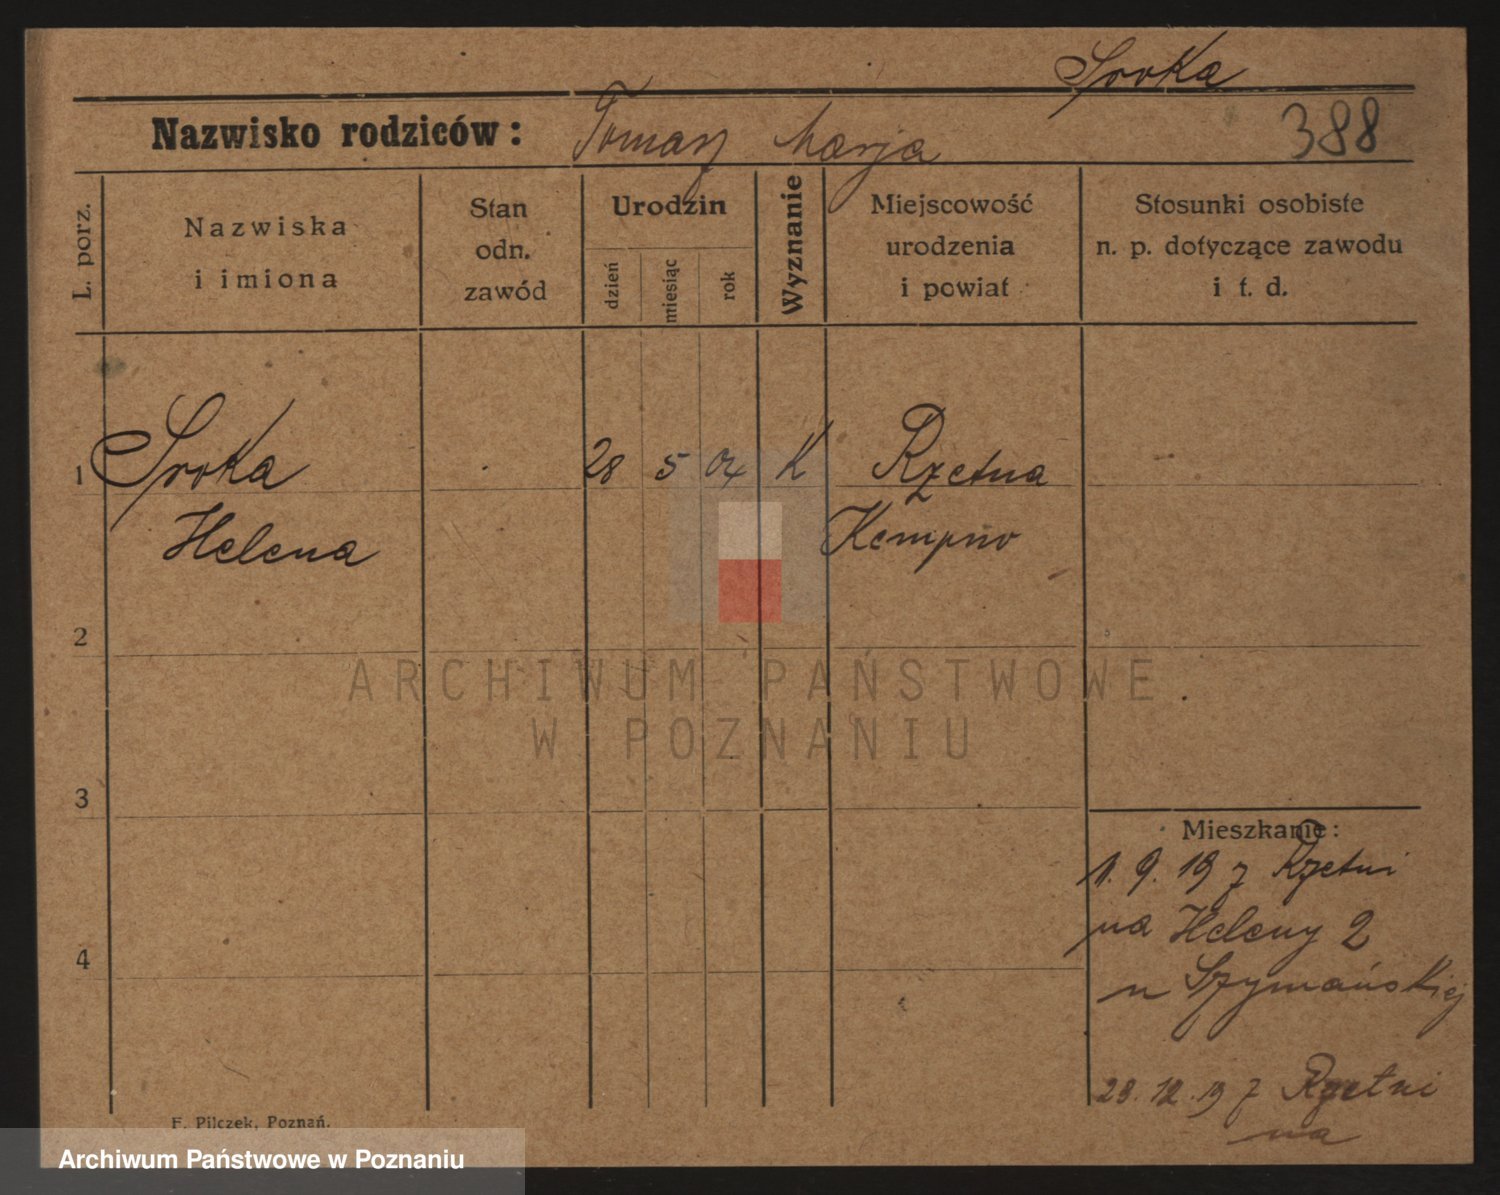 Sroka
388
Nazwisko rodziców: Tomasz Marja
L. porz.
Nazwiska
i imiona
Stan
odn.
zawód
Urodzin
dzień
miesiąc
rok
Wyznanie
Miejscowość
urodzenia
i powiat
Stosunki osobiste
n. p. dotyczące zawodu
i t. d.
1 Sroka 28 5 04 K Rzetna
Helena Kempno
2
ARCHIWUM PAŃSTWOWE
W POZNANIU
3
Mieszkanie:
11. 9. 19 z Rzetni
na Heleny 2
u Szymańskiej
4
23. 12. 19 z Rzetni
na
F. Pilczek, Poznań.
Archiwum Państwowe w Poznaniu